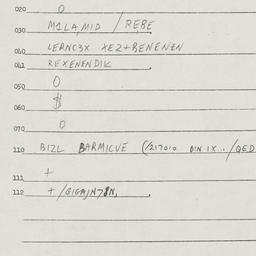 020 0
030 M1LA,MID / REBE
040 LERNC3X XE2+BENENEN
041 REXENENDIK
050 0
060 $
070 0
110 BIZL BARMICVE (/217010 DIN 1X.../QED
111 +
112 + /GIGAJN71N,